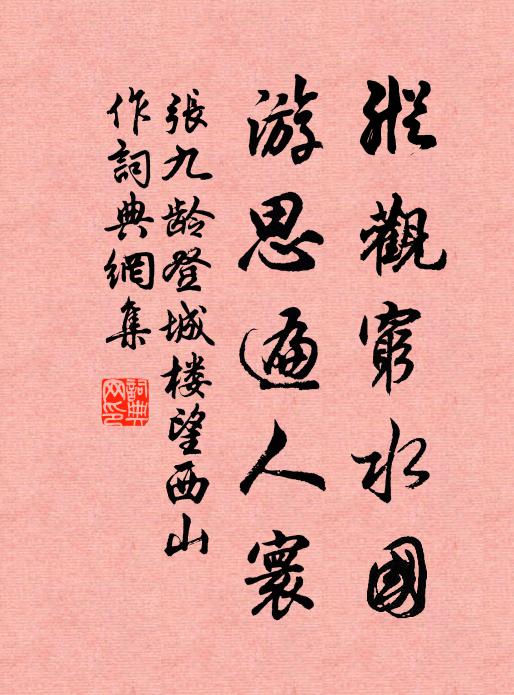 縱觀窮水國
游思遍人寰
張九龄登城楼望西山
作詞典網集
詞典
网印